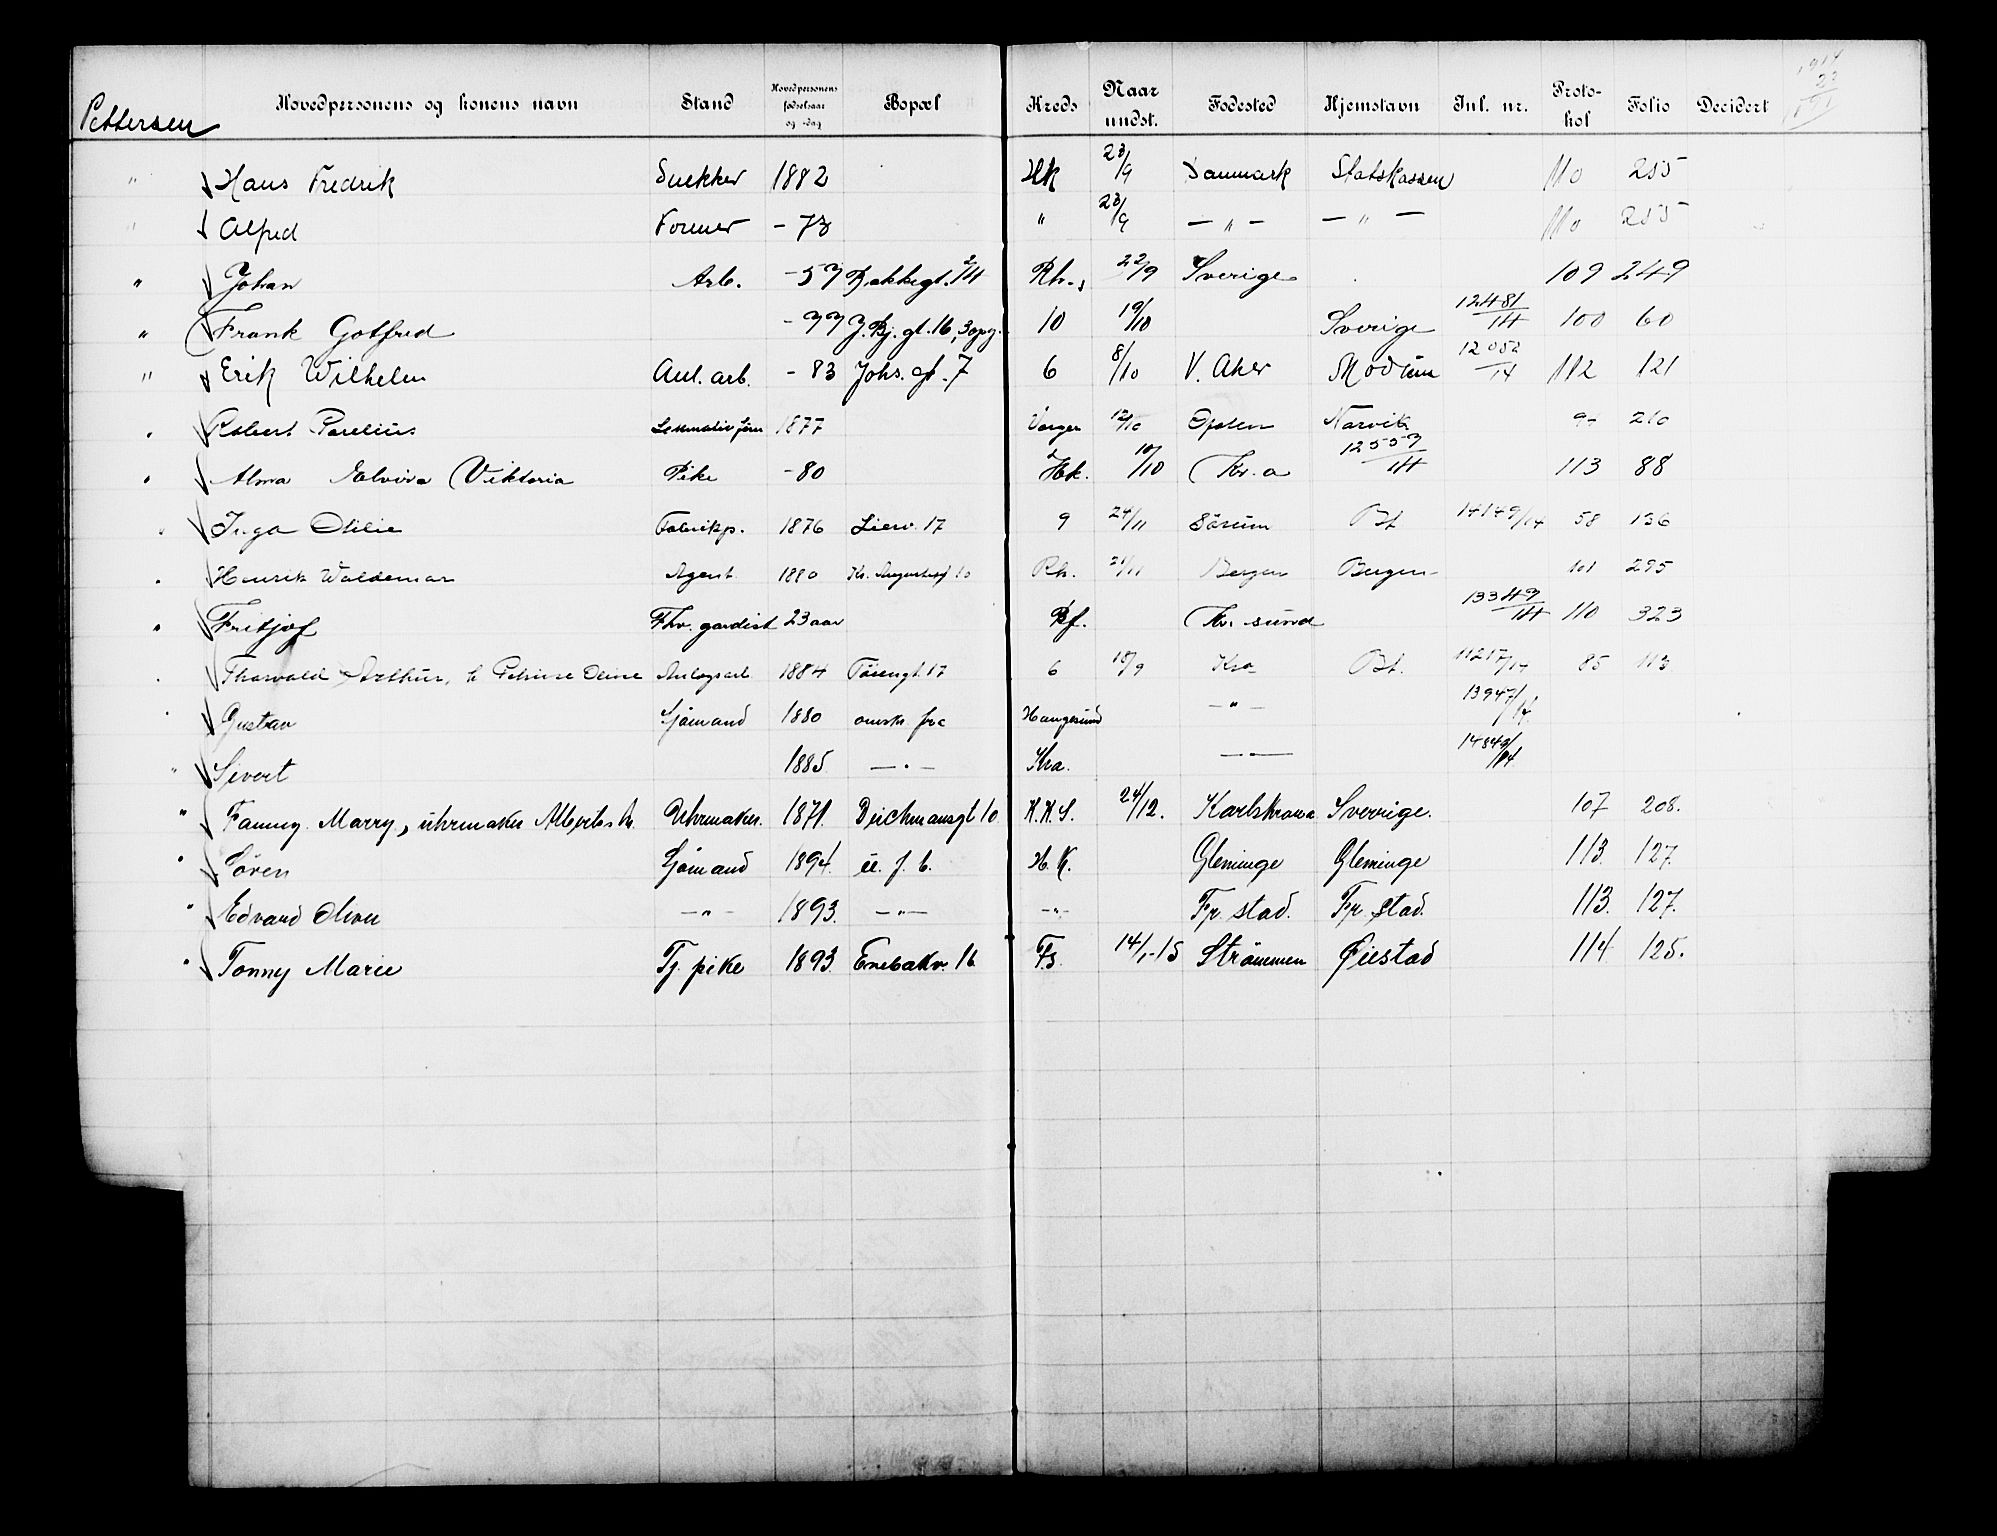 Pettersen Hovedpersonens og konens navn Stand Hovedpersonens fødselsaar og -dag Bopæl Kreds Naar undst. Fødested Hjemstavn Jnl. nr. Proto-kol Folio Decidert 1914
" Hans Fredrik Snekker 1882 Hk 23/9 Danmark Statskassen 110 255
" Alfred Former - 73 " 23/9 — " — — " — 110 255
" Johan Arb. - 57 Bakkegt. Rh. 22/9 Sverige 109 249
" Frank Gotfred - 77 J. Bj. gt. 16, 3 opg. 10 19/10 Sverige 12481/14 100 60
" Erik Wilhelm Anl. arb. - 83 Johs. gt. 7 6 8/10 V. Aker Modum 12052/14 112 121
" Robert Parelius 1877 12/10 Narvik 210
" Alma Elvira Viktoria Pike - 80 Hk. 10/10 Kr.a 12557/14 113 88
" Inga Otilie Fabrikp. 1876 Lierv. 17 9 24/11 Sørum Bt 14149/14 58 136
" Henrik Waldemar Agent 1880 Kr. Augustsgt 10 Rh. 21/11 Bergen Bergen 101 295
" Fritjof Fhv. gardist 23 aar Bf. Kr. sund 13349/14 110 323
" Thorvald Arthur, h. Petrine Oline Anlegsarb 1884 Tøiengt. 17 6 15/9 Kra Bt. 11217/14 85 113
" Gustav Sjømand 1880 omsk. fra Haugesund — " — 13947/14
" Sivert 1885 — " — Kra. 14849/14
" Fanny Marry, uhrmaker Albert's h. Uhrmaker. 1871. Deichmansgt 10 K.K.S. 24/12. Karlskrona Sverrige. 107 208.
" Søren Sjømand 1894. u. f. b. H.K. Gleminge Gleminge 113. 127.
" Edvard Oliver — " — 1893. — " — — " — Fr. stad. Fr. stad. 113. 127.
" Tonny Marie Tj. pike 1893. Enebakv. 16 F.s. 14/1-15 Strømmen Øiestad 114 125.